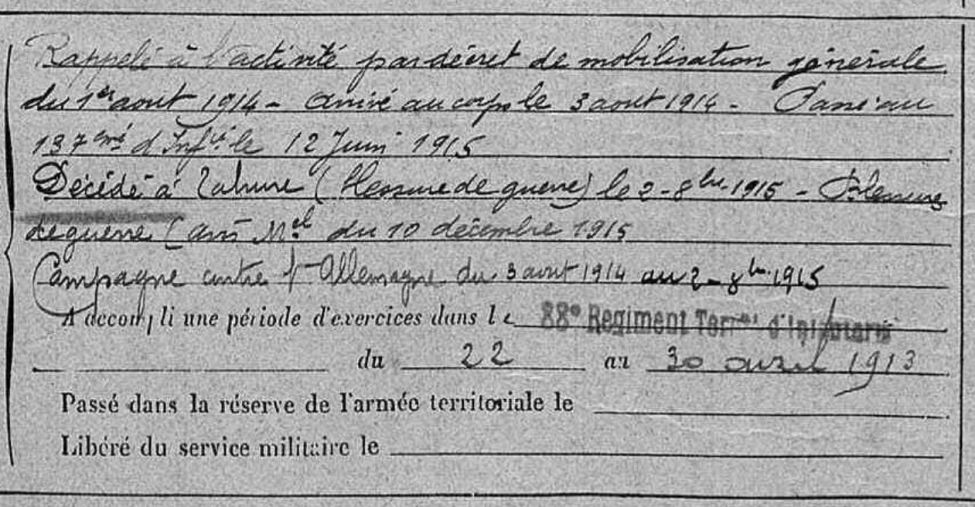 Rappelé à l'activité par décret de mobilisation générale
du 1er aout 1914 - arrivé au corps le 3 aout 1914 - Passé au
137ème d'Infie le 12 Juin 1915
Décédé à Tahure (blessure de guerre) le 2 - 8bre 1915 - Blessures
de guerre (avis Mel du 10 décembre 1915
Campagne contre l'Allemagne du 3 aout 1914 au 2 - 8bre 1915
A accompli une période d'exercices dans le 88e Régiment Terral d'Infanterie
du 22 au 30 avril 1913
Passé dans la réserve de l'armée territoriale le
Libéré du service militaire le